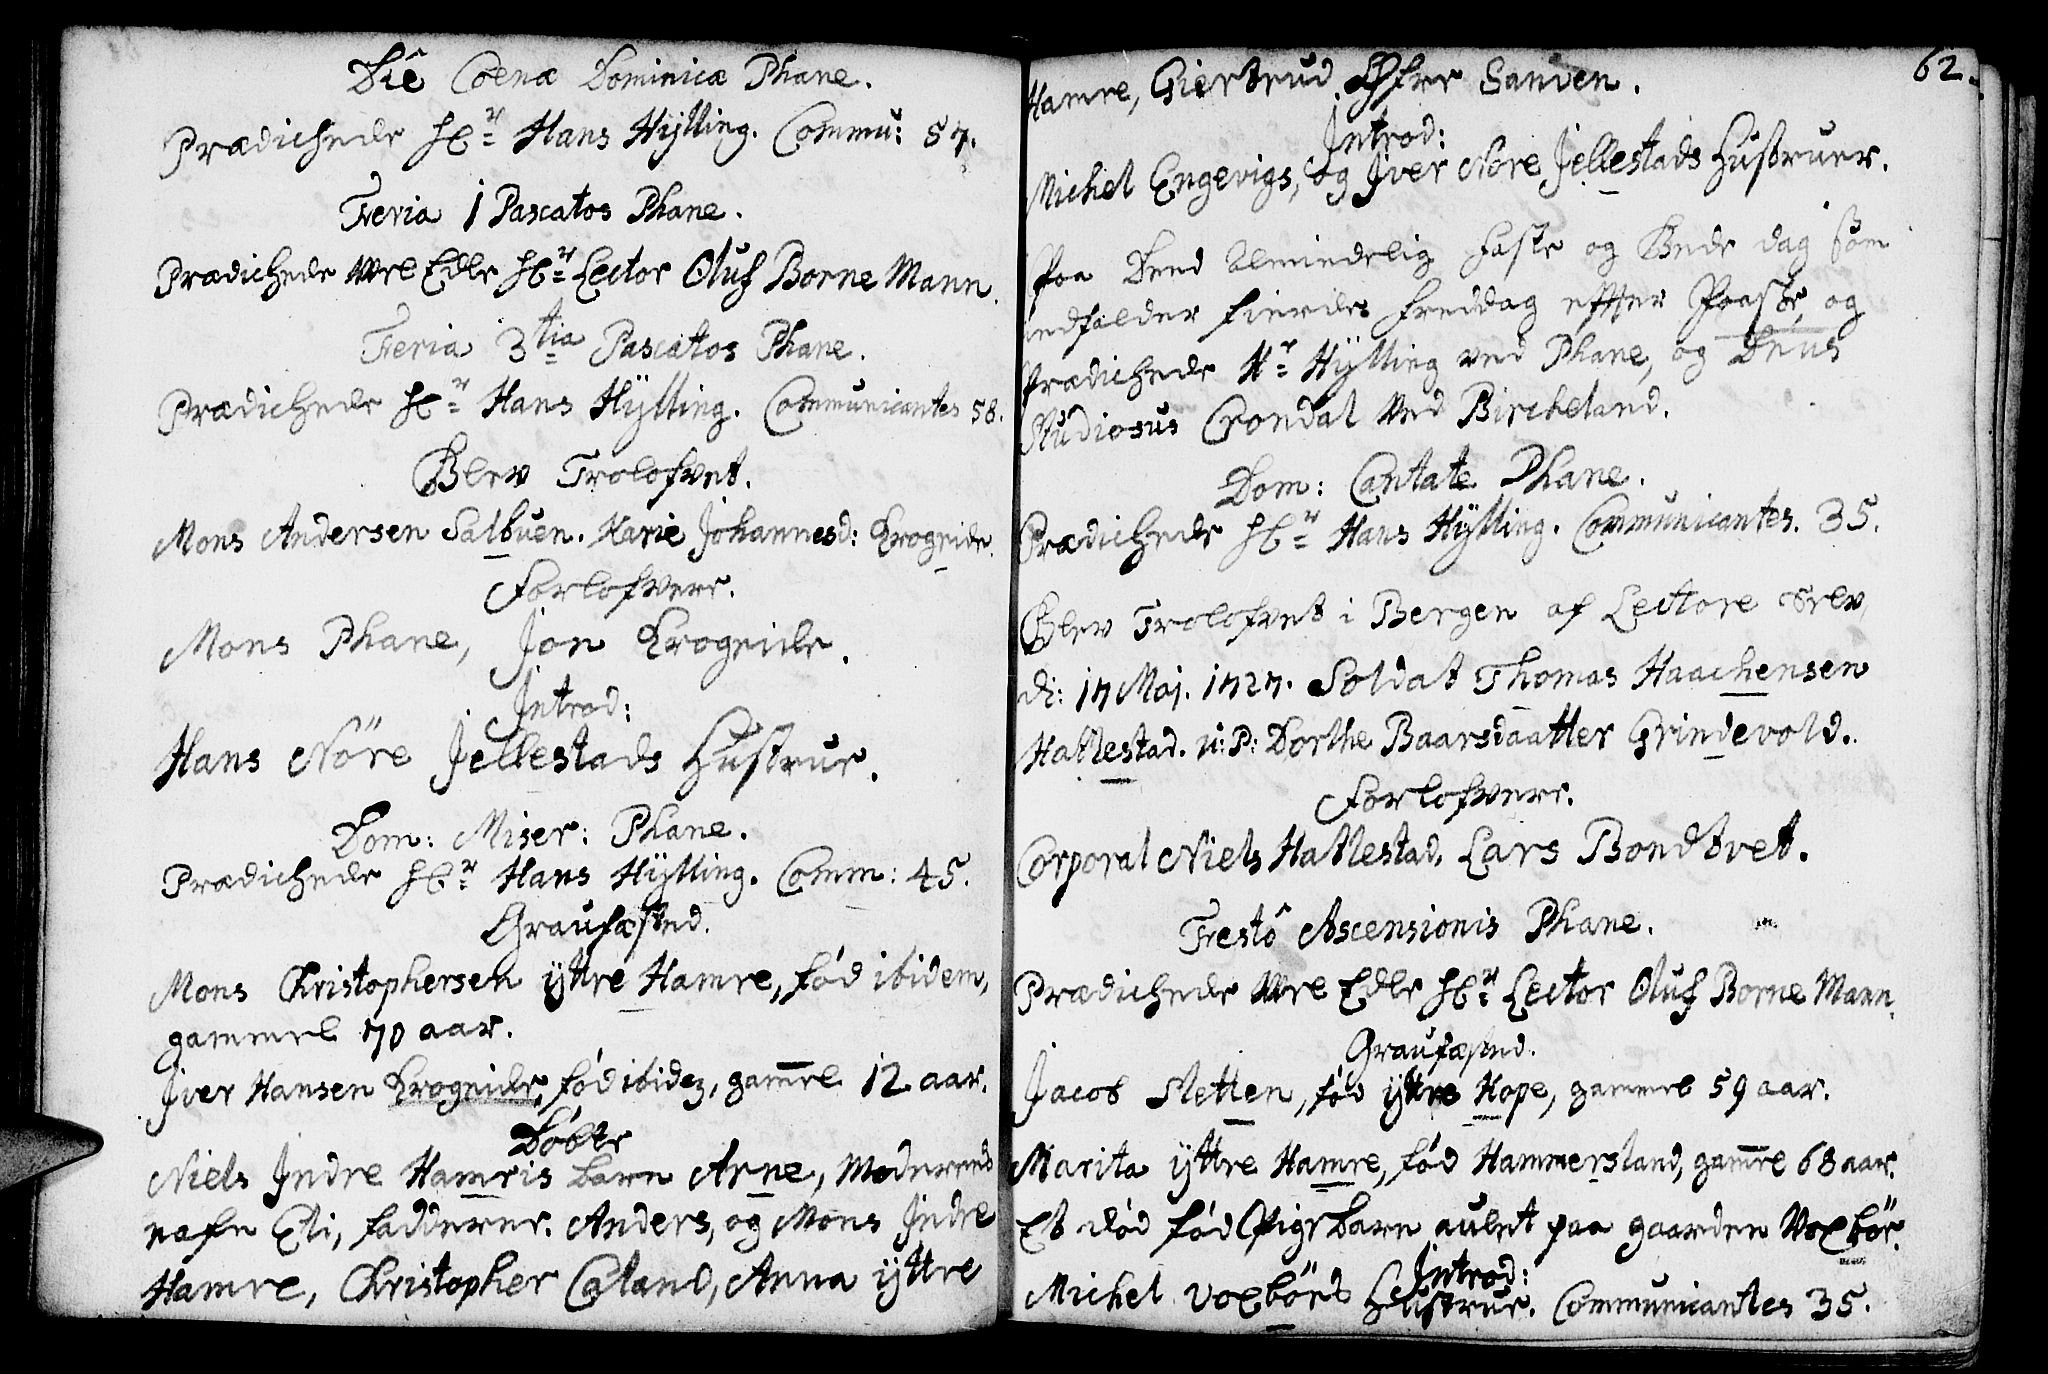 Diê Coenæ Dominicæ Phane.
Prædichede Hr Hans Hÿlling. Commu: 57.
Feria 1 Pascatos Phane.
Prædichede Wel Edle Hr Lector Oluf Borneman.
Feria 3tia Pascatos Phane.
Prædichede Hr Hans Hÿlling. Communicantes 58.
Blev Trolofvet.
Mons Andersen Salbuen. Karie Johannesd: Krogeide.
Forlofvere.
Mons Phane, Jon Krogeide.
Introd:
Hans Nöre Jellestads Hustrue.
Dom: Miser: Phane.
Prædichede Hr Hans Hÿlling. Comm: 45.
Graufæsted.
Mons Christophersen ÿttre Hamre, fød ibidem,
gammel 70 aar.
Jver Hansen Krogeide, fød ibidem, gam̅el 12 aar.
Döbte
Niels Jndre Hamris barn Arne, Moderens
nafn Eli, fadderne. Anders, og Mons Jndre
Hamre, Christopher Caland, Anna ÿttre
62.
Hamre, Giertrud Øfre Sanden.
Introd:
Michel Engevigs, og Jver Nöre Jellestads Hustruer.
Paa Dend Almindelig Faste og Bede dag som
indfalder fierde Freddag effter Paaske, og
Prædichede Hr Hÿlling ved Phane, og Deus
Studiosus Crondal Ved Bircheland.
Dom: Cantate Phane.
Prædichede Hr Hans Hÿlling. Communicantes. 35.
Blev Trolofvet i Bergen af Lectore
di: 17 Maj. 1727. Soldat Thomas Haachensen
Hatlestad. u: P: Dorthe Baarsdaatter Grindevold.
Forlofvere.
Corporal Niels Hatlestad, Lars Bondtvet.
Festô Ascensionis Phane.
Prædichede Wel Edle Hr Lector Oluf Borneman.
Graufæsted.
Jacob Sletten, fød ÿttre Hope, gammel 59 aar.
Marita ÿttre Hamre, fød Hammersland, gam̅el 68 aar.
Et død fød Pige barn aulet paa gaarden Voxbör.
Introd:
Michel Voxbörs Hustrue. Communicantes 35.